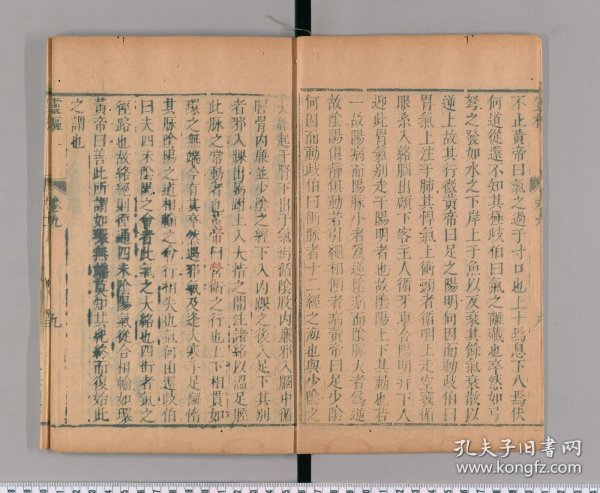 不止黃帝曰氣之過于寸口也上十焉息下八焉伏
何道從還不知其極歧伯曰氣之離臟也卒然如弓
弩之發如水之下岸上于魚以反衰其餘氣衰散以
逆上故其行微黃帝曰足之陽明何因而動歧伯曰
胃氣上注于肺其悍氣上衝頭者循咽上走空竅循
眼系入絡腦出顑下客主人循牙車合陽明并下人
迎此胃氣別走于陽明者也故陰陽上下其動也若
一故陽病而陽脉小者為逆陰病而陰脉大者為逆
故陰陽俱靜俱動若引繩相傾者病黃帝曰足少陰
何因而動歧伯曰衝脉者十二經之海也與少陰之
大絡起于腎下出于氣街循陰股內廉邪入膕中循
脛骨內廉並少陰之經下入內踝之後入足下其別
者邪入踝出屬跗上入大指之間注諸絡以溫足脛
此脉之常動者也黃帝曰營衛之行也上下相貫如
環之無端今有其卒然遇邪氣及逢大寒手足懈惰
其脉陰陽之道相輸之會行相失也氣何由還歧伯
曰夫四末陰陽之會者此氣之大絡也四街者氣之
徑路也故絡絕則徑通四末解則氣從合相輸如環
黃帝曰善此所謂如環無端莫知其紀終而復始此
之謂也
靈樞
卷九
九
孔夫子旧书网
www.kongfz.com